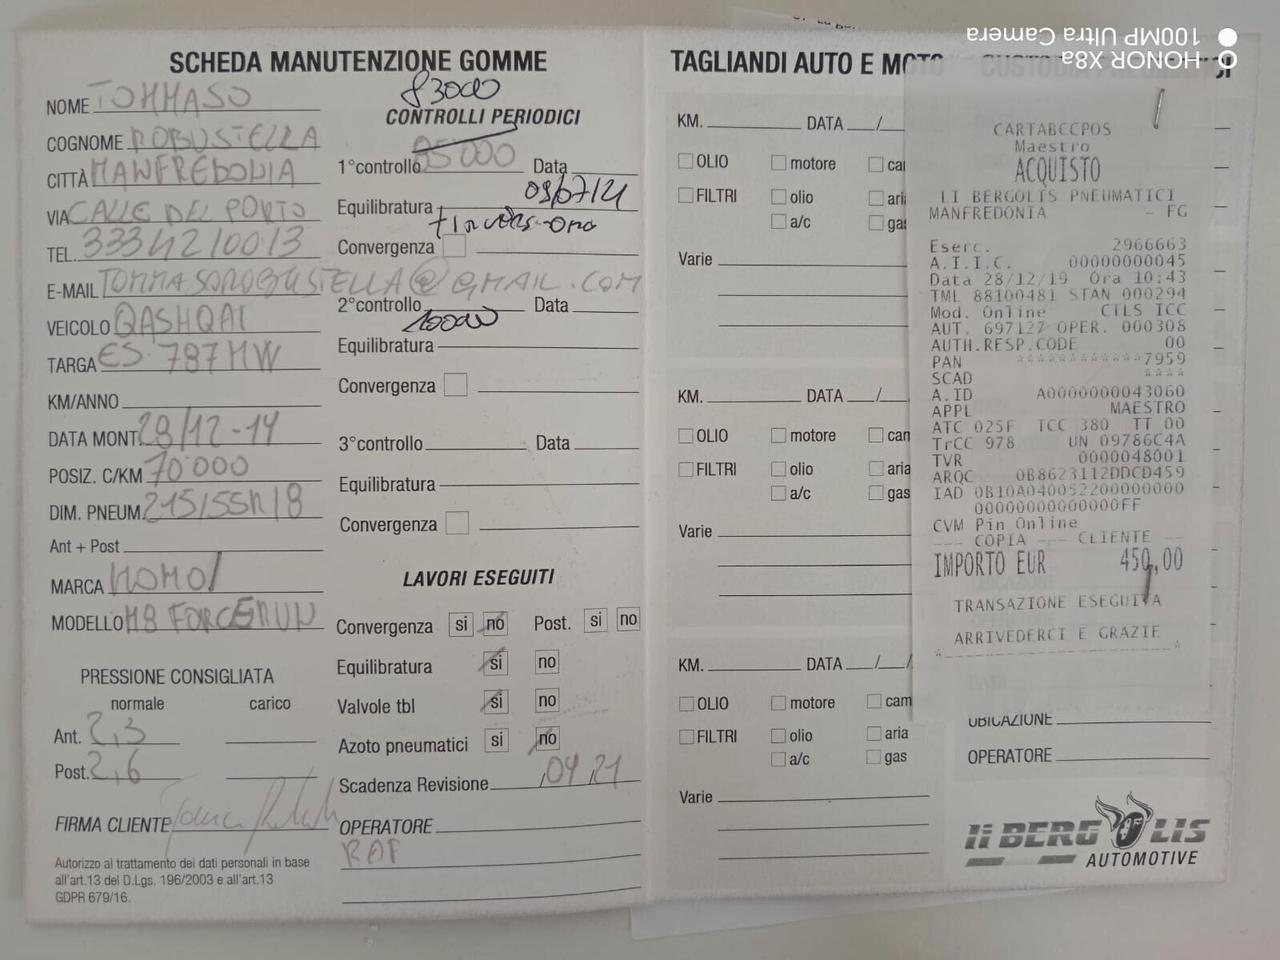 HONOR X8a
100MP Ultra Camera
SCHEDA MANUTENZIONE GOMME
NOME TOMMASO
COGNOME ROBUSTELLA
CITTÀ MANFREDONIA
VIA CALLE DEL PORTO
TEL. 3334210013
E-MAIL TOMMASOROBUSTELLA@GMAIL.COM
VEICOLO QASHQAI
TARGA ES 787MW
KM/ANNO
DATA MONT. 28/12-19
POSIZ. C/KM 70'000
DIM. PNEUM. 215/55R18
Ant + Post
MARCA MOMO
MODELLO M8 FORCERUN
PRESSIONE CONSIGLIATA
normale carico
Ant. 2,3
Post. 2,6
FIRMA CLIENTE
Autorizzo al trattamento dei dati personali in base
all'art.13 del D.Lgs. 196/2003 e all'art.13
GDPR 679/16.
83000
CONTROLLI PERIODICI
1°controllo 85000 Data
Equilibratura 09/07/21
Convergenza
2°controllo Data
10000
Equilibratura
Convergenza
3°controllo Data
Equilibratura
Convergenza
LAVORI ESEGUITI
Convergenza si no Post. si no
Equilibratura si no
Valvole tbl si no
Azoto pneumatici si no
Scadenza Revisione 04 21
OPERATORE
RAF
TAGLIANDI AUTO E MOTO
KM. DATA /
OLIO motore
FILTRI olio
a/c
Varie
KM. DATA /
OLIO motore
FILTRI olio aria
a/c gas
Varie
KM. DATA / /
OLIO motore cam
FILTRI olio aria
a/c gas
Varie
CARTABCCPOS
Maestro
ACQUISTO
LI BERGOLIS PNEUMATICI
MANFREDONIA - FG
Eserc. 2966663
A.I.I.C. 00000000045
Data 28/12/19 Ora 10:43
TML 88100481 STAN 000294
Mod. Online CILS ICC
AUT. 697127 OPER. 000308
AUTH.RESP.CODE 00
PAN ************7959
SCAD ****
A.ID A0000000043060
APPL MAESTRO
ATC 025F TCC 380 TT 00
TrCC 978 UN 09786C4A
TVR 0000048001
ARQC 0B8623112DDCD459
IAD 0B10A04005220000000​0
00000000000000FF
CVM Pin Online
--- COPIA --- CLIENTE ---
IMPORTO EUR 450,00
TRANSAZIONE ESEGUITA
ARRIVEDERCI E GRAZIE
UBICAZIONE
OPERATORE
li BERGOLIS
AUTOMOTIVE